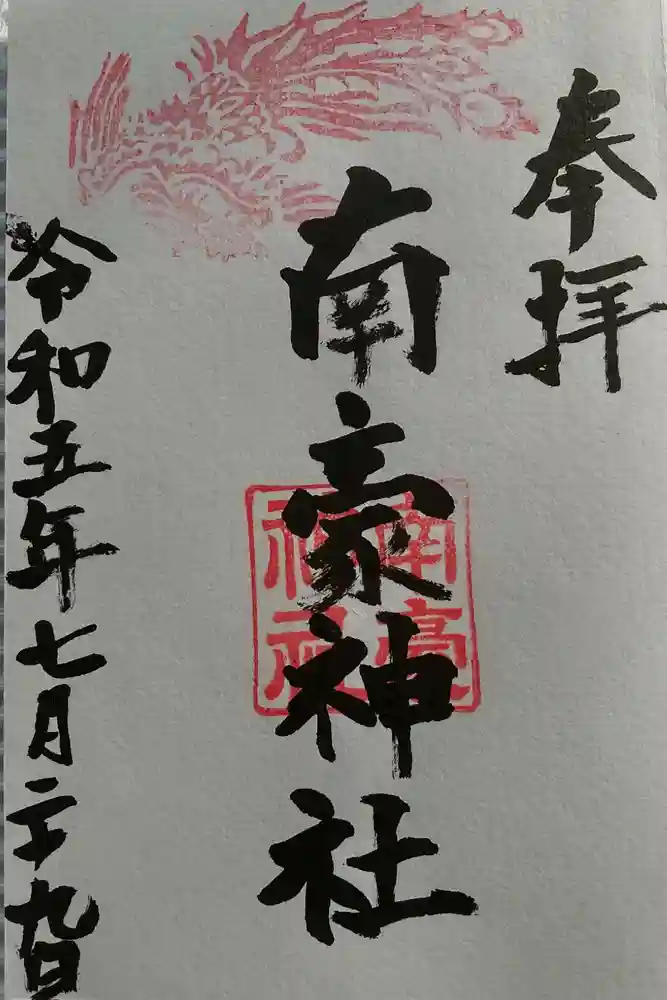 奉拝
南豪神社
令和五年七月二十九日